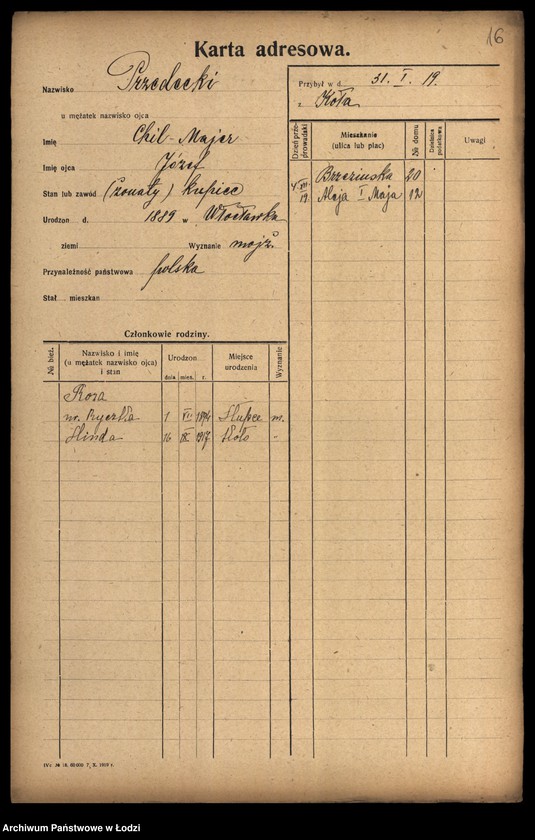 16
Karta adresowa.
Nazwisko Przedecki
u mężatek nazwisko ojca
Imię Chil-Majer
Imię ojca Józef
Stan lub zawód (żonaty) kupiec
Urodzon d. 1889 w Włocławku
ziemi Wyznanie mojż.
Przynależność państwowa polska
Stał. mieszkan
Członkowie rodziny.
№ bież. Nazwisko i imię (u mężatek nazwisko ojca) i stan Urodzon dnia mies. r. Miejsce urodzenia Wyznanie
Roza
1 VII 1894 Słupca m.
Hinda 16 IX 1917 Koło "
Przybył w d. 31. I. 19.
z Koła
Dzień przeprowadzki Mieszkanie (ulica lub plac) № domu Dzielnica podatkowa Uwagi
Brzezińska 20
19. Aleja I Maja 12
Archiwum Państwowe w Łodzi